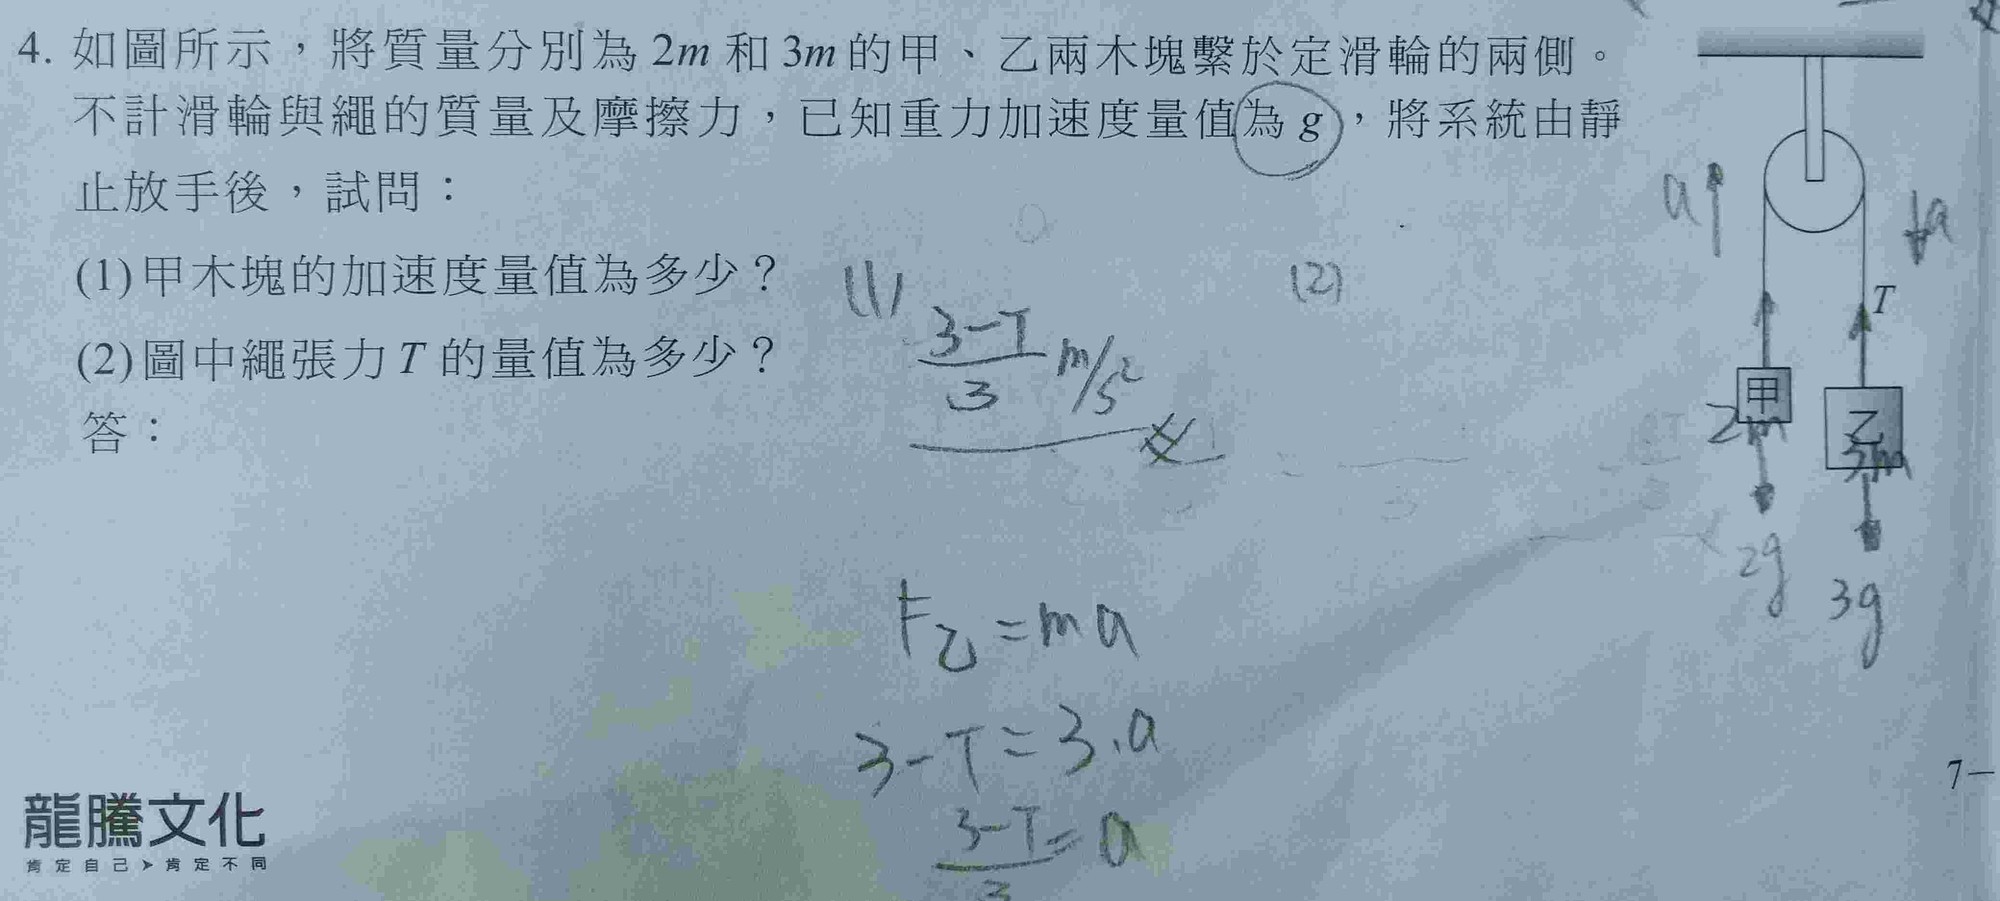 4. 如圖所示，將質量分別為 2m 和 3m 的甲、乙兩木塊繫於定滑輪的兩側。
不計滑輪與繩的質量及摩擦力，已知重力加速度量值為 g，將系統由靜
止放手後，試問：
(1)甲木塊的加速度量值為多少？
(2)圖中繩張力 T 的量值為多少？
答：
(1)
3-T
3
m/s²
(2)
F乙=ma
3-T=3.a
3-T
3
=a
a
a
T
甲
2m
乙
3m
2g
3g
7-
龍騰文化
肯定自己➤肯定不同